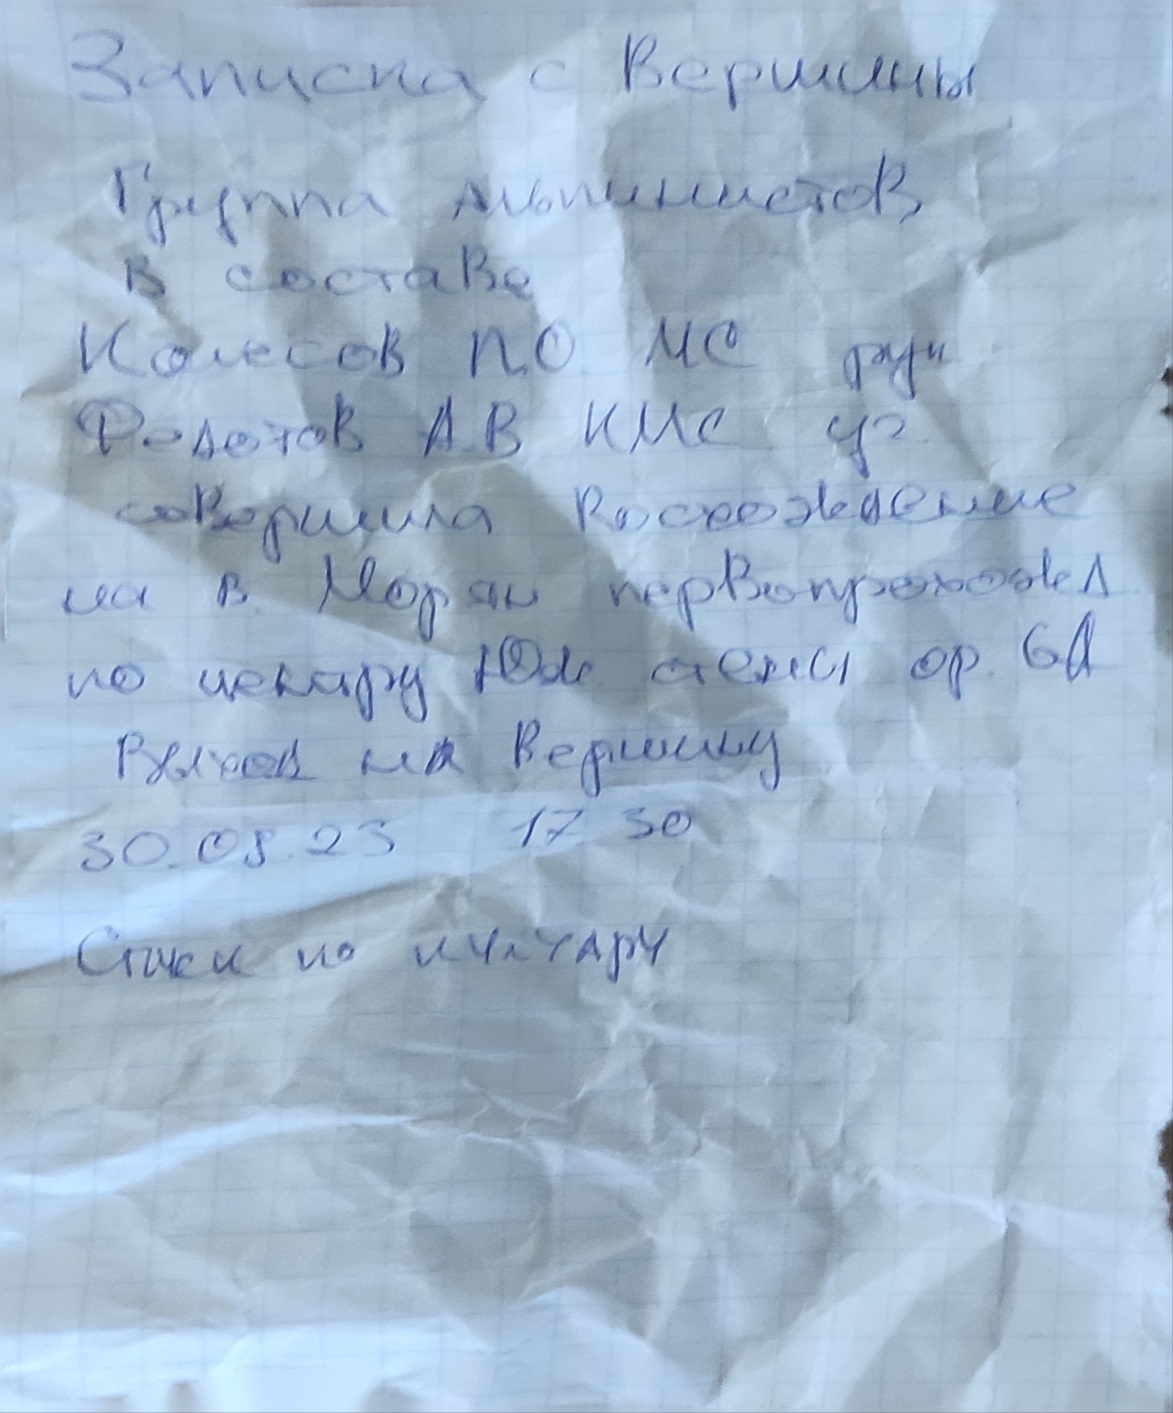 Записка с Вершины
Группа альпинистов
в составе
Колесов П.О. МС рук
Федотов А.В КМС уч.
совершила восхождение
на в. Морян первопроход
по центру Юж. стены ор. 6А
Выход на вершину
30.08.23 17 30
Спуск по